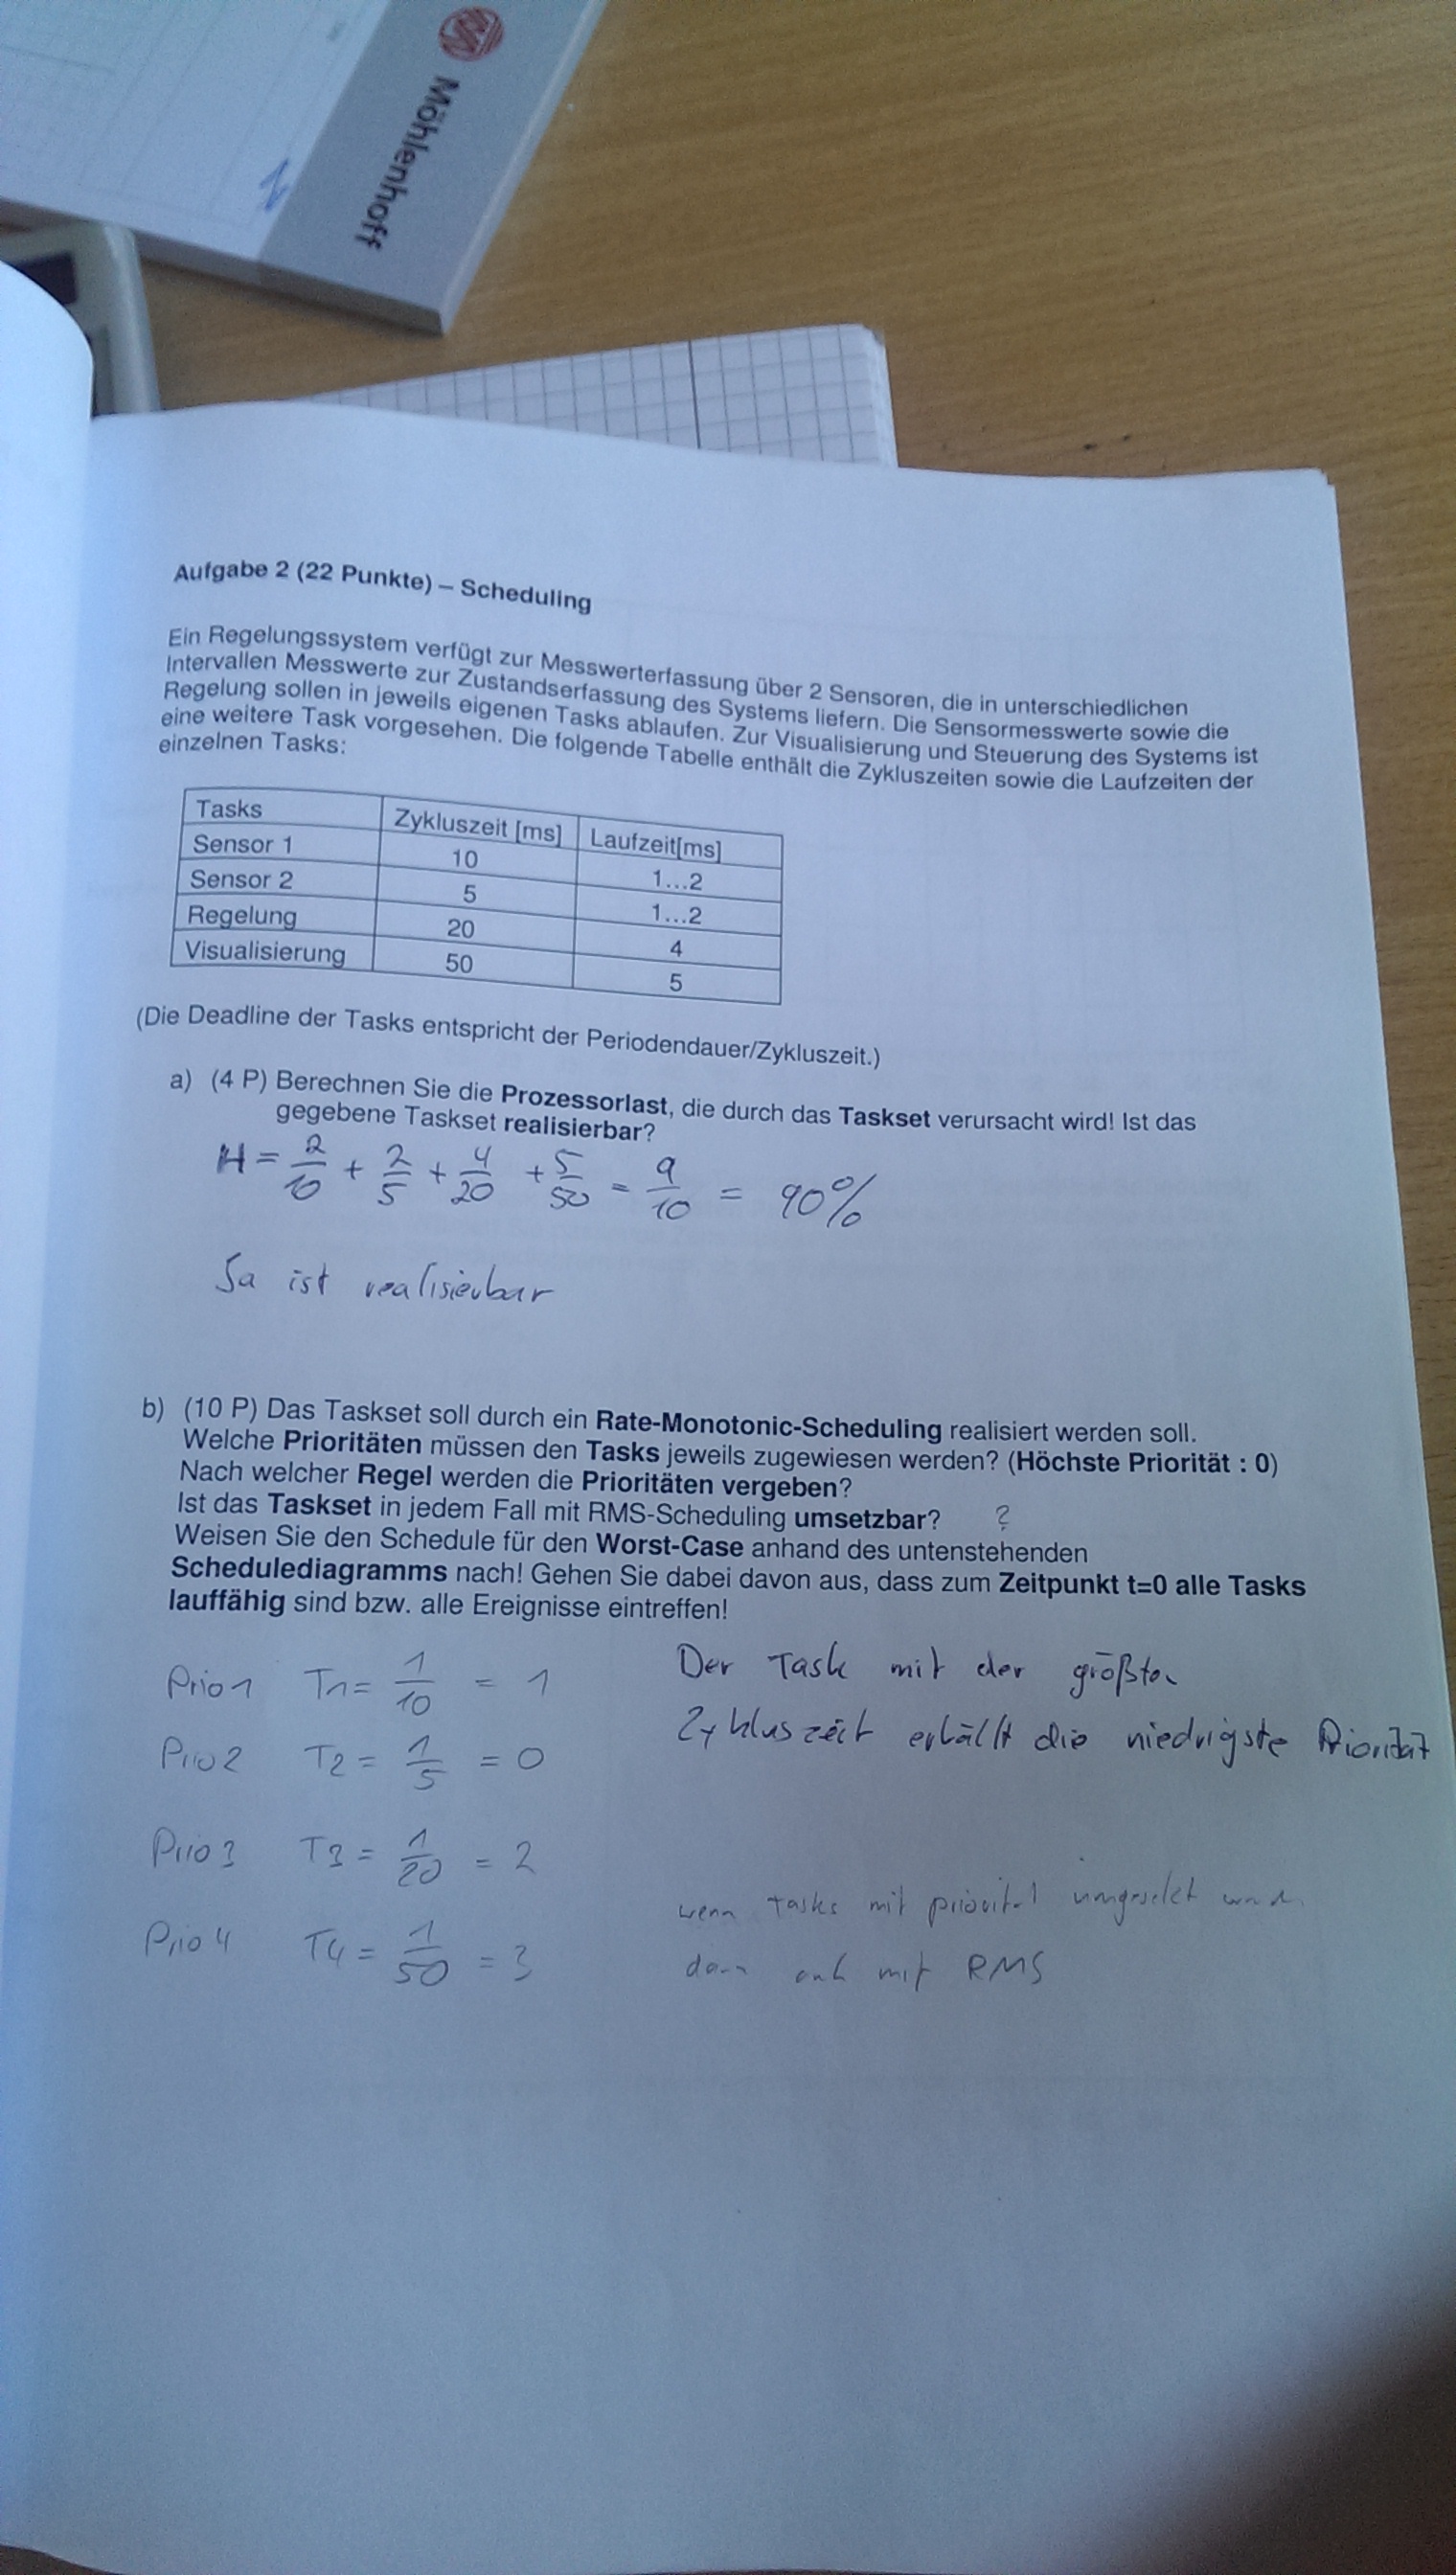 Möhlenhoff
Aufgabe 2 (22 Punkte) – Scheduling
Ein Regelungssystem verfügt zur Messwerterfassung über 2 Sensoren, die in unterschiedlichen
Intervallen Messwerte zur Zustandserfassung des Systems liefern. Die Sensormesswerte sowie die
Regelung sollen in jeweils eigenen Tasks ablaufen. Zur Visualisierung und Steuerung des Systems ist
eine weitere Task vorgesehen. Die folgende Tabelle enthält die Zykluszeiten sowie die Laufzeiten der
einzelnen Tasks:
Tasks Zykluszeit [ms] Laufzeit[ms]
Sensor 1 10 1...2
Sensor 2 5 1...2
Regelung 20 4
Visualisierung 50 5
(Die Deadline der Tasks entspricht der Periodendauer/Zykluszeit.)
a) (4 P) Berechnen Sie die Prozessorlast, die durch das Taskset verursacht wird! Ist das
gegebene Taskset realisierbar?
H = 2/10 + 2/5 + 4/20 + 5/50 = 9/10 = 90%
Ja ist realisierbar
b) (10 P) Das Taskset soll durch ein Rate-Monotonic-Scheduling realisiert werden soll.
Welche Prioritäten müssen den Tasks jeweils zugewiesen werden? (Höchste Priorität : 0)
Nach welcher Regel werden die Prioritäten vergeben?
Ist das Taskset in jedem Fall mit RMS-Scheduling umsetzbar? ?
Weisen Sie den Schedule für den Worst-Case anhand des untenstehenden
Schedulediagramms nach! Gehen Sie dabei davon aus, dass zum Zeitpunkt t=0 alle Tasks
lauffähig sind bzw. alle Ereignisse eintreffen!
Prio 1 T1 = 1/10 = 1
Prio 2 T2 = 1/5 = 0
Prio 3 T3 = 1/20 = 2
Prio 4 T4 = 1/50 = 3
Der Task mit der größten
Zykluszeit erhällt die niedrigste Priorität
wenn Tasks mit
mit RMS